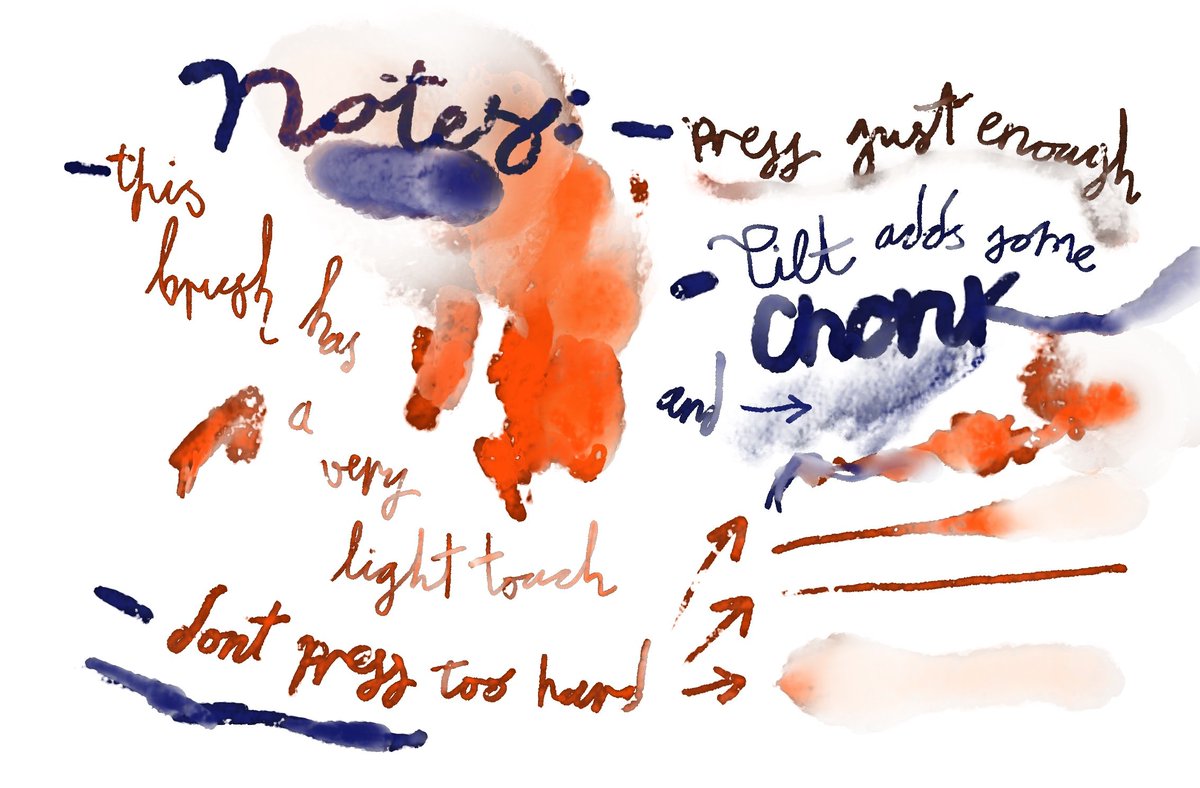 Notes:
- this
brush has
a
very
light touch
- dont press too hard
- press just enough
- Tilt adds some
chonk
and →